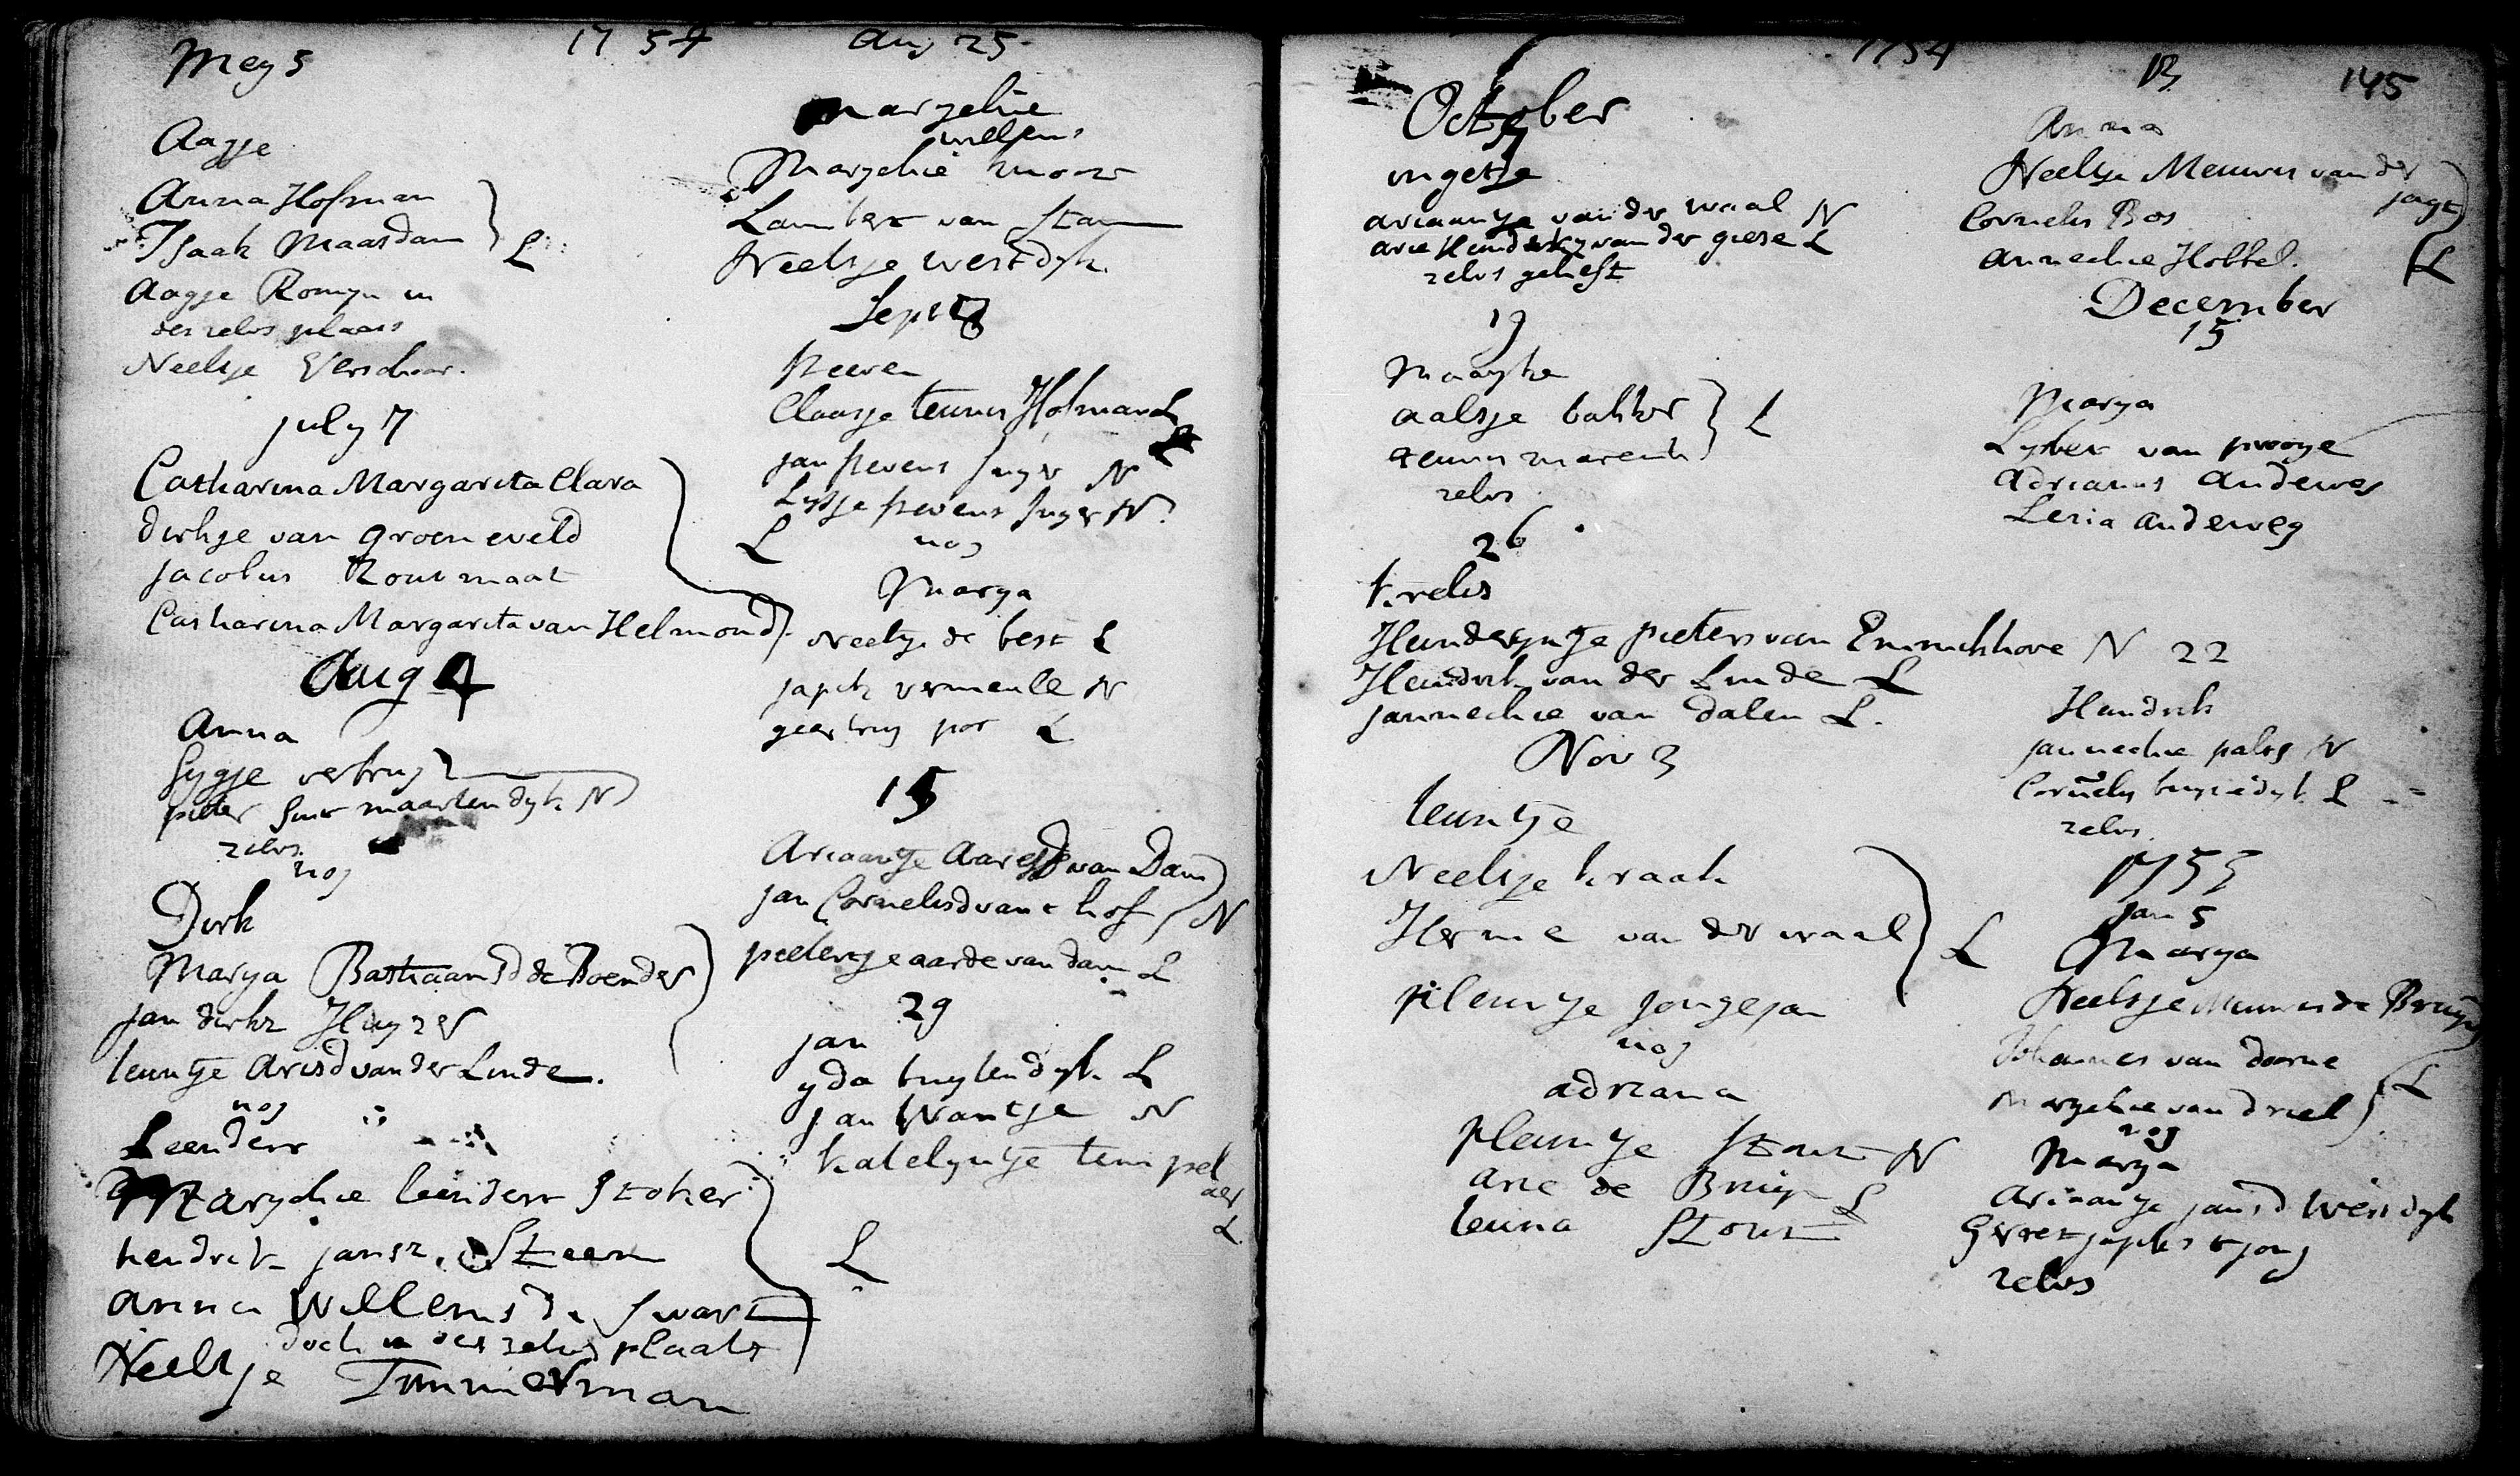 1754
Mey 5
Aagje
Anna Hofman
Isaak Maasdam
L
Aagje Romyn in
des zelvs plaats
Neeltje Verschoor.
july 7
Catharina Margarita Clara
dirkje van groeneveld
jacobus Rontmaat
Catharina Margarita van Helmond
L
Aug 4
Anna
Sygje verbrug
pieter Smit maartendyk N
zelvs
nog
Dirk
Marya Bastiaansd de Boender
jan dirkz Huyzer
leuntje Arisd van der Linde.
nog
Leendert
Marychie leendert Stoker
hendrik jansz. Steen
anna Willems de Swart
doch in des zelvs plaats
Neeltje Timmerman
L
Aug 25
marychie
willems
Marychie Moor
Lambert van Stam
Neeltje westdyk
Sept 8
steeven
Claasje teunis Hofman L
jan stevens Suyr N
Lysje stevens Suyr N
nog
Marya
Neeltje de best L
japik vermeule N
geertruy pot L
15
Ariaantje Aaresd van Dam
jan Cornelisd van t hof N
pietertje aarde van dam L
29
jan
yda buytendyk L
jan Wantje N
katelyntje tempel
aer
L
1754
B
145
October
ingetje
ariaantje van der waal N
arie Hendrikz van der giese L
zelvs geheft
19
Maayke
aaltje bakker
teunis marents
L
zelvs
26
krelis
Hendryntje pieters van Emmikhove N
Hendrik van der Linde L
jannechie van dalen L.
Nov 3
leuntje
Neeltje kraak
Herme van der waal
L
pleuntje jongejan
nog
adriana
pleuntje Stout N
arie de Bruyn L
leuna Stout
Anna
Neeltje Meuwis van der
jagt
Cornelis Bos
annechie Hobbel.
L
December
15
Marya
Lysbet van prooye
Adrianus andeweg
Lena andeweg
22
Hendrik
jannechie palts N
Cornelis buytedyk L
zelvs
1755
jan 5
Marya
Neeltje Meuwis de Bruyn
Johannes van doorne
Marychie van driel
L
nog
Marya
Ariaantje jansd Westdyk
Gerret japiks t jong
zelvs